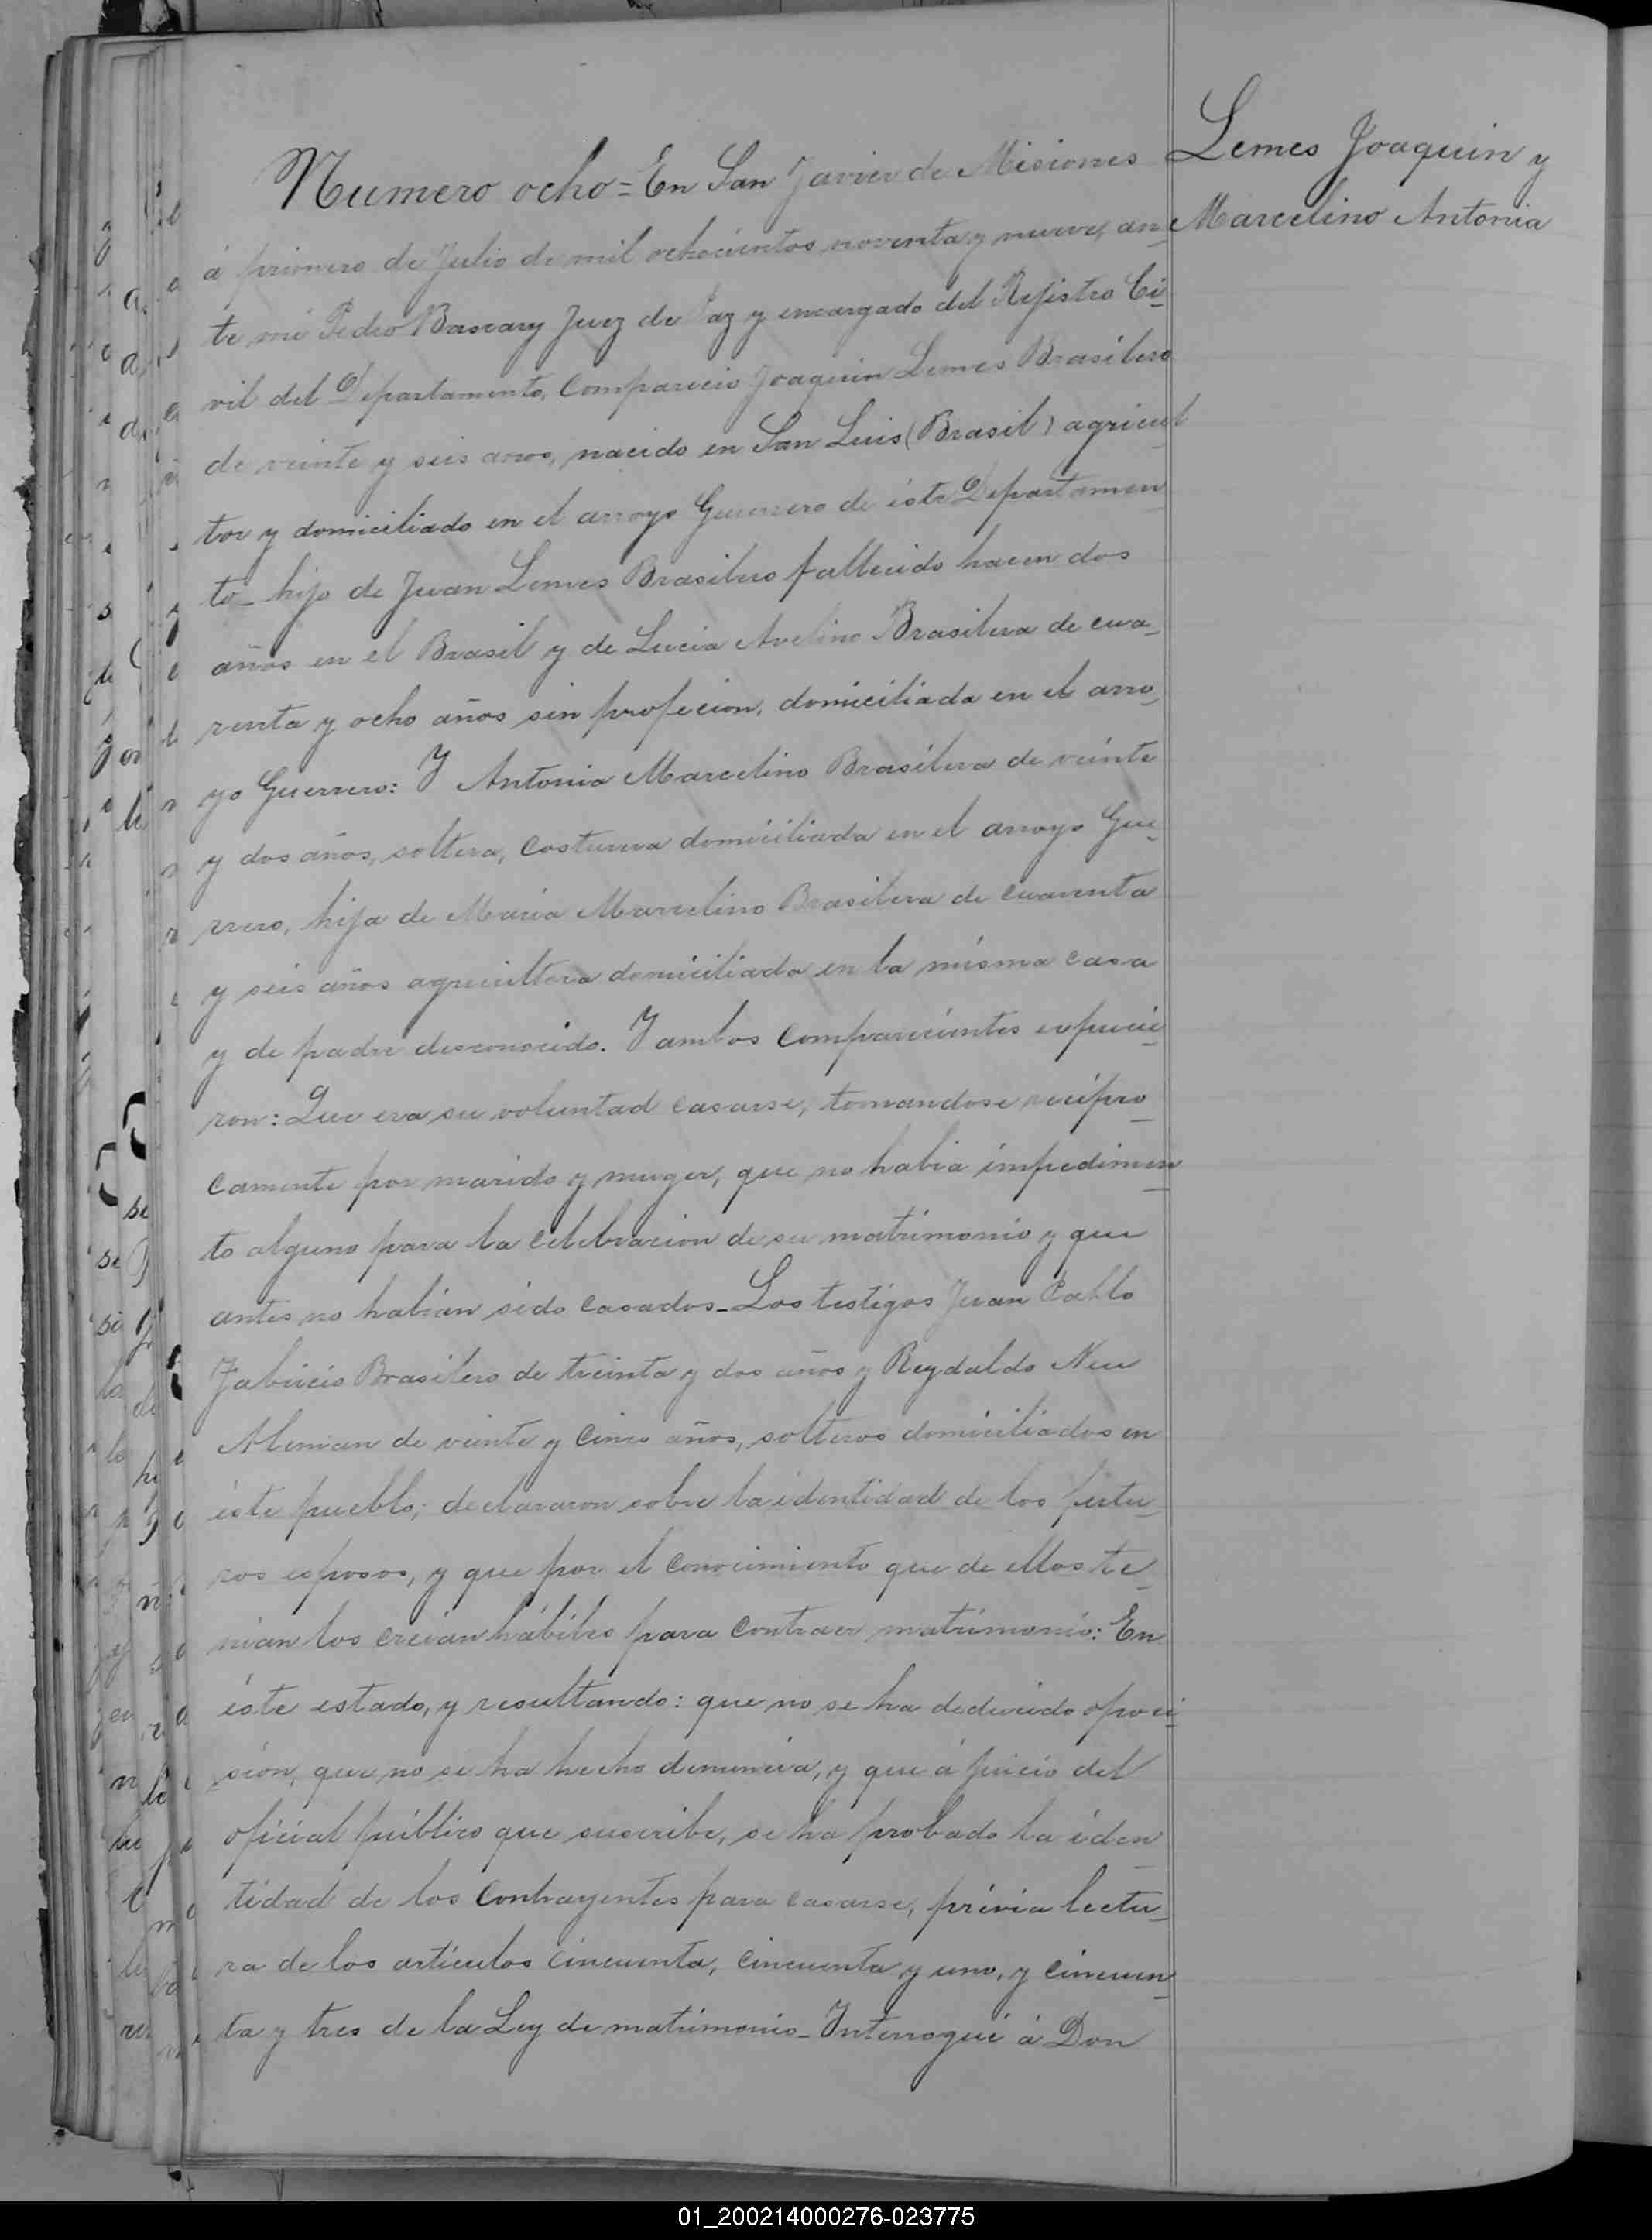 Lemes Joaquin y
Marcelino Antonia
Numero ocho = En San Javier de Misiones
á primero de Julio de mil ochocientos noventa y nueve, an_
te mi Pedro Bascary Juez de Paz y encargado del Rejistro Ci_
vil del Departamento, Comparecio Joaquin Lemes Brasilero
de veinte y seis anos, nacido en San Luis (Brasil) agricul_
tor y domiciliado en el arroyo Guerrero de éste Departamen_
to_ hijo de Juan Lemes Brasilero fallecido hacen dos
años en el Brasil y de Lucia Avelino Brasilera de cua_
renta y ocho años sin profecion, domiciliada en el arro_
yo Guerrero: Y Antonia Marcelino Brasilera de veinte
y dos años, soltera, Costurera domiciliada en el arroyo Gue_
rrero, hija de Maria Marcelino Brasilera de cuarenta
y seis años agricultora domiciliada en la misma casa
y de padre desconocido. Y ambos Comparecientes espucie_
ron: Que era su voluntad casarse, tomandose recipro_
camente por marido y muger, que no habia impedimen_
to alguno para la celebracion de su matrimonio y que
antes no habian sido casados_ Los testigos Juan Pablo
Fabricio Brasilero de treinta y dos años y Reydaldo Neu
Aleman de veinte y cinco años, solteros domiciliados en
éste pueblo; declararon sobre la identidad de los futu_
ros esposos, y que por el conocimiento que de ellos te_
nian los creian hábiles para contraer matrimonio: En
éste estado, y resultando: que no se ha deducido oposi_
sion, que no se ha hecho denuncia, y que á juicio del
oficial público que suscribe, se ha probado la iden_
tidad de los Contrayentes para casarse, prévia lectu_
ra de los artículos cincuenta, cincuenta y uno, y cincuen_
ta y tres de la Ley de matrimonio_ Interrogué á Don
01_200214000276-023775